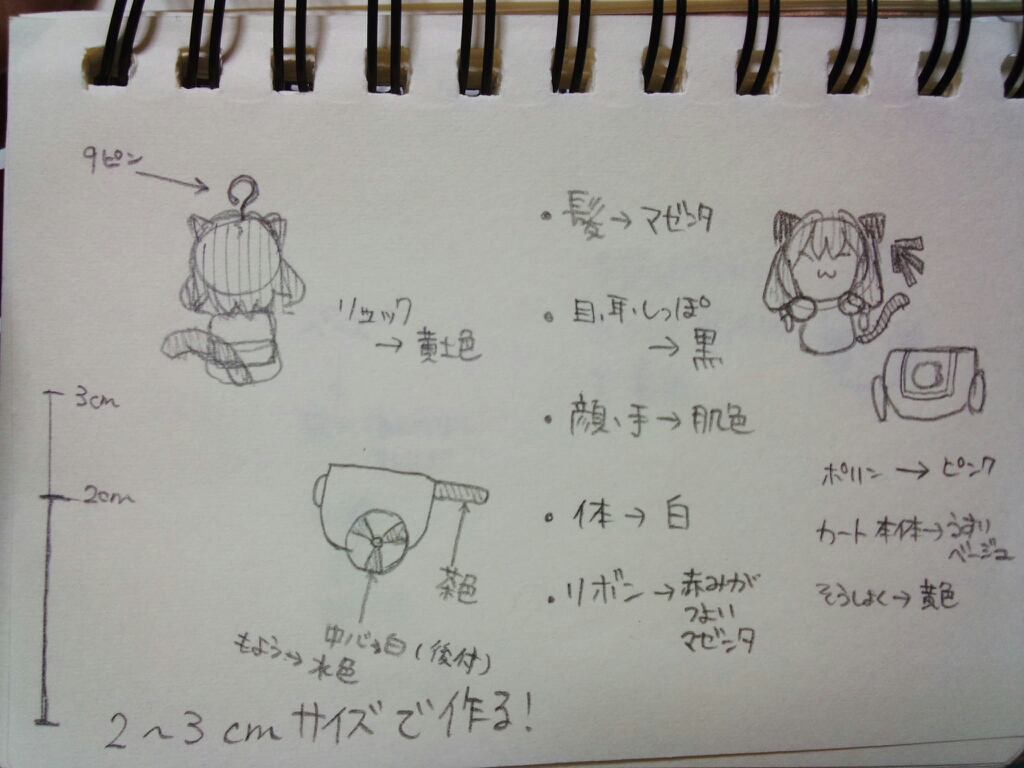 9ピン
リュック
→ 黄土色
3cm
2cm
茶色
中心→白(後付)
もよう→水色
・髪→マゼンタ
・目、耳、しっぽ
→ 黒
・顔、手→肌色
・体→白
・リボン→赤みが
つよい
マゼンタ
ポリン→ピンク
カート本体→うすい
ベージュ
そうしょく→黄色
2~3cmサイズで作る!